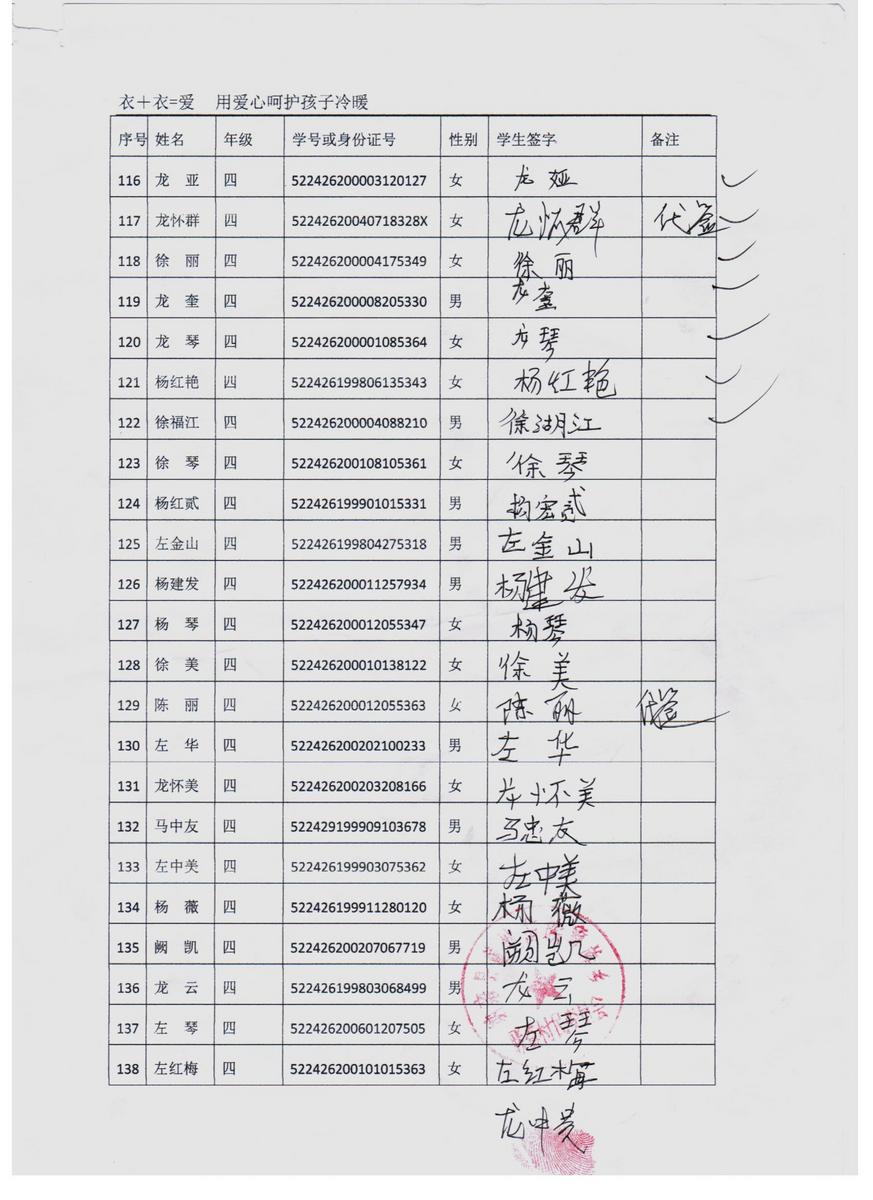 衣+衣=爱 用爱心呵护孩子冷暖
序号 姓名 年级 学号或身份证号 性别 学生签字 备注
116 龙 亚 四 522426200003120127 女 龙 娅
117 龙怀群 四 52242620040718328X 女 龙怀群 代签
118 徐 丽 四 522426200004175349 女 徐 丽
119 龙 奎 四 522426200008205330 男 龙奎
120 龙 琴 四 522426200001085364 女 龙琴
121 杨红艳 四 522426199806135343 女 杨红艳
122 徐福江 四 522426200004088210 男 徐湖江
123 徐 琴 四 522426200108105361 女 徐 琴
124 杨红贰 四 522426199901015331 男 杨宏贰
125 左金山 四 522426199804275318 男 左金山
126 杨建发 四 522426200011257934 男 杨建发
127 杨 琴 四 522426200012055347 女 杨琴
128 徐 美 四 522426200010138122 女 徐 美
129 陈 丽 四 522426200012055363 女 陈 丽 代签
130 左 华 四 522426200202100233 男 左 华
131 龙怀美 四 522426200203208166 女 龙怀美
132 马中友 四 522429199909103678 男 马忠友
133 左中美 四 522426199903075362 女 左中美
134 杨 薇 四 522426199911280120 女 杨 薇
135 阙 凯 四 522426200207067719 男 阙凯
136 龙 云 四 522426199803068499 男 龙 云
137 左 琴 四 522426200601207505 女 左 琴
138 左红梅 四 522426200101015363 女 左红梅
龙中贵